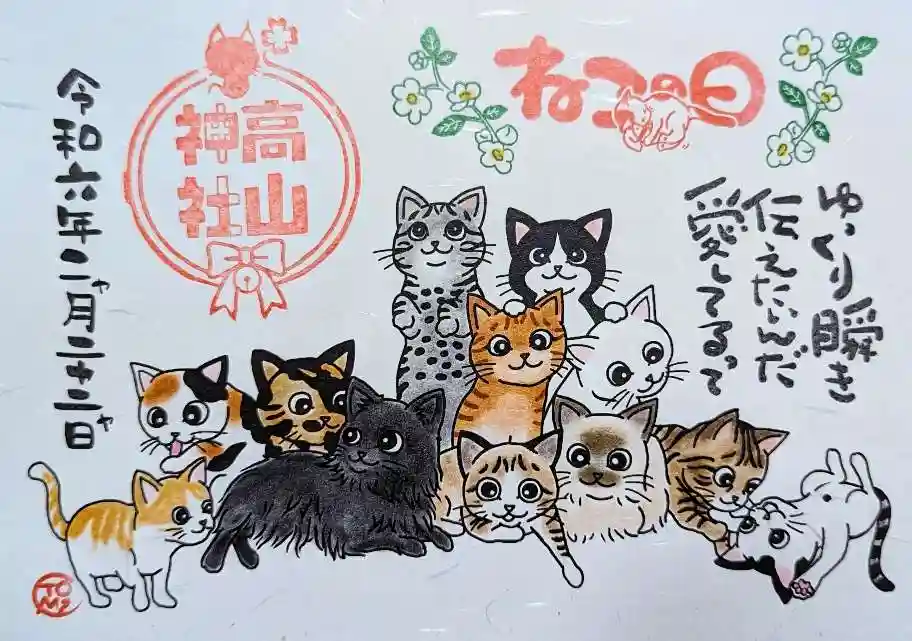 ねこの日
ゆっくり瞬き
伝えたいんだ
愛してるって
高山
神社
令和六年二ャ月二十二ャ日